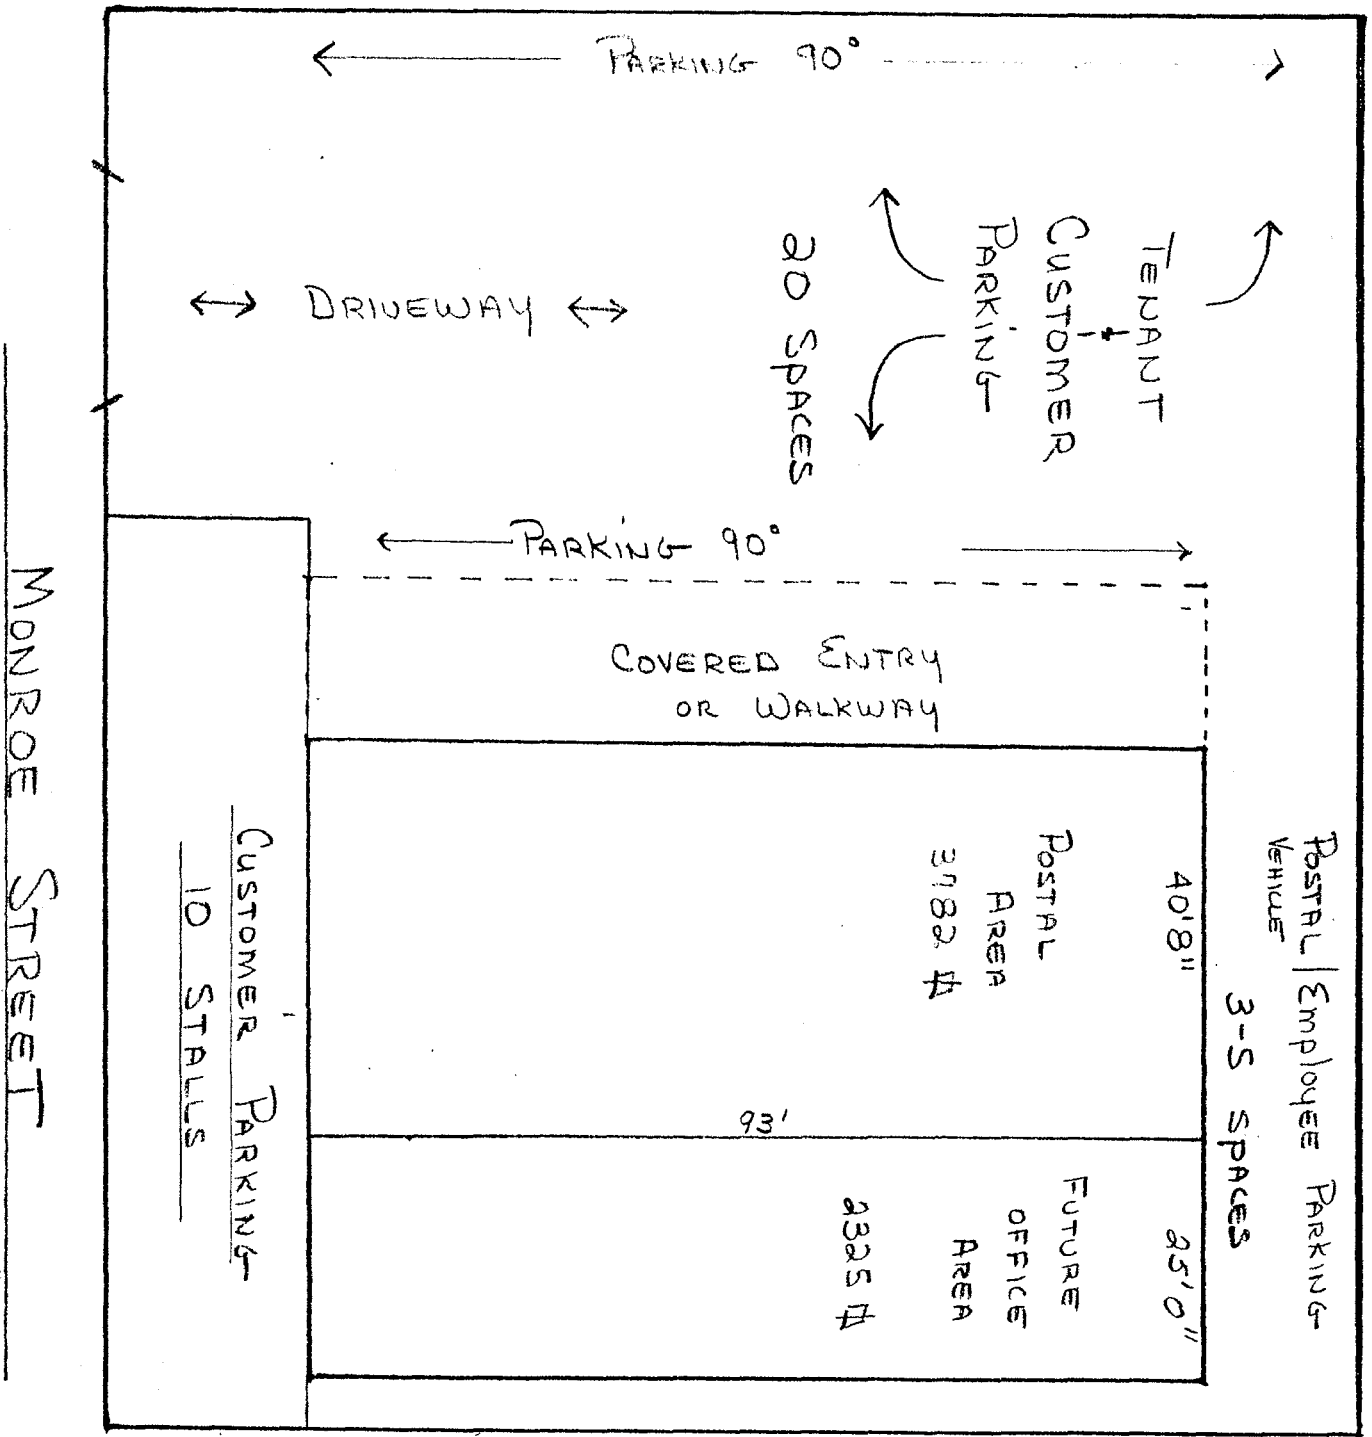 PARKING 90°
TENANT
+
CUSTOMER
PARKING
20 SPACES
DRIVEWAY
PARKING 90°
COVERED ENTRY
OR WALKWAY
POSTAL/EMPLOYEE PARKING
VEHICLE
3-5 SPACES
40'8"
POSTAL
AREA
3782 ⌗
93'
25'0"
FUTURE
OFFICE
AREA
2325 ⌗
CUSTOMER PARKING
10 STALLS
MONROE STREET